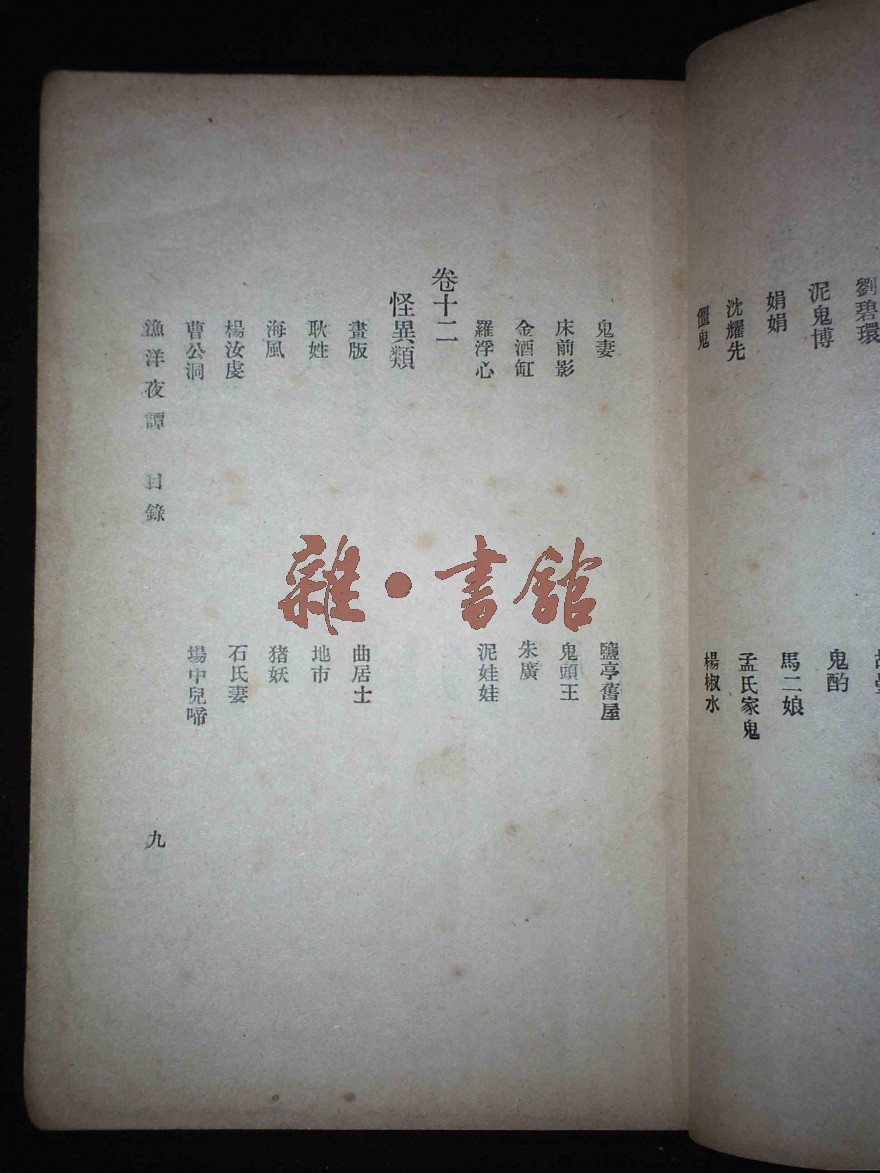 劉碧環
泥鬼博
鬼酌
娟娟
馬二娘
沈耀先
孟氏家鬼
僵鬼
楊椒水
鬼妻
鹽亭舊屋
床前影
鬼頭王
金酒缸
朱廣
羅浮心
泥娃娃
卷十二
怪異類
畫版
曲居士
耿姓
地市
海風
猪妖
楊汝虔
石氏妻
曹公洞
場中兒啼
漁洋夜譚 目錄
九
雜·書館